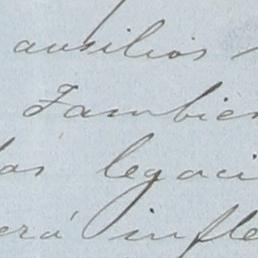 ausilios
Tambien
las legaci
erá infle